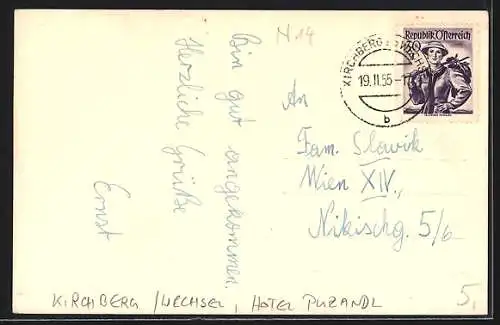 M 14
Bin gut angekommen.
Herzliche Grüße
Ernst
Republik Österreich
KIRCHBERG
19.II.55-1
b
An
Fam. Slawik
Wien XIV.,
Nikischg. 5/6
KIRCHBERG / WECHSEL, HOTEL PUZANDL
5,